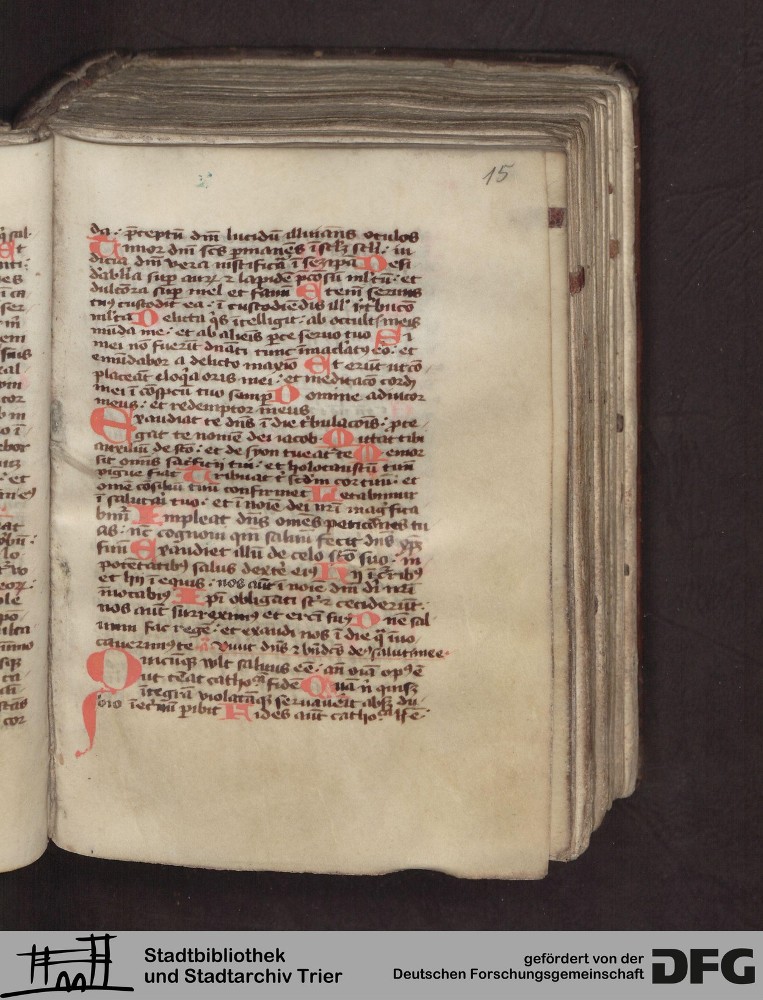 15
da · p̄ceptū dn̄i lucidū illuīans oculos
Timor dn̄i sc̄s ꝑmanēs ī sc̄l̄ꝫ sc̄l̄i · iu
dicia dn̄i vera iustificā ī semꝑa Desi
d'abilia suꝑ auꝝ ⁊ lapidē p̄cosū ml'tū · et
dulcōra suꝑ mel et fauū Etem̄ seruus
tuꝰ custodit ea · ī custodiēdis ill' r̄tbucō
ml'ta Delicta q̄s ītelligit · ab occult' meis
mūda me · et ab alieīs ꝑce seruo tuo Si
mei nō fuerūt dn̄ati tunc īmac̄latꝰ eo · et
emūdabor a delicto maxīo Et erūt ut cō
placeāt eloq̄a oris mei · et meditacō cord'
mei ī cōspcū tuo semꝑ Domine adiutor
meus · et redemptor meus
Exaudiat te dn̄s ī die t'bulacōis · ꝓte
gat te nomē dei iacob Mittat tibi
auxiliū de sc̄to · et de syon tueat' te Memor
sit om̄is sac'ficij tui · et holocaustū tuū
pīgue fiat Tribuat t' sc̄d'm cor tuū · et
om̄e cōsiliū tuū confirmet Letabimur
ī salutāi tuo · et ī noīe dei nr̄i mag'fica
bim' Impleat dn̄s om̄es peticōes tu
as · nc̄ cognoui qm̄ saluū fecit dn̄s xp̄m
suū Exaudiet illū de celo sc̄to suo · in
potētatibꝰ salus dextē eiꝰ Hij ī c'ribꝰ
et hij ī equis · nos aūt ī noīe dn̄i di nr̄i
īuocabiꝰ Ipī obligati st̄ ⁊ ceciderūt ·
nos aūt surreximꝰ et erc'i suꝰ Dn̄e sal
uum fac regē · et exaudi nos ī die q̄ īuo
cauerimꝰ te a Viuit dn̄s ⁊ bn̄dcs de' salutis mee
Quicūqꝫ vult saluus eē · an̄ oīa opꝰ ē
ut teāt catho^a fidē Quā n̄ quisqꝫ
ītegrā violatāqꝫ seruauēit absqꝫ du
bio ī et'nū ꝑibit Fides aūt catho^a h' ē ·
Stadtbibliothek
und Stadtarchiv Trier
gefördert von der
Deutschen Forschungsgemeinschaft
DFG